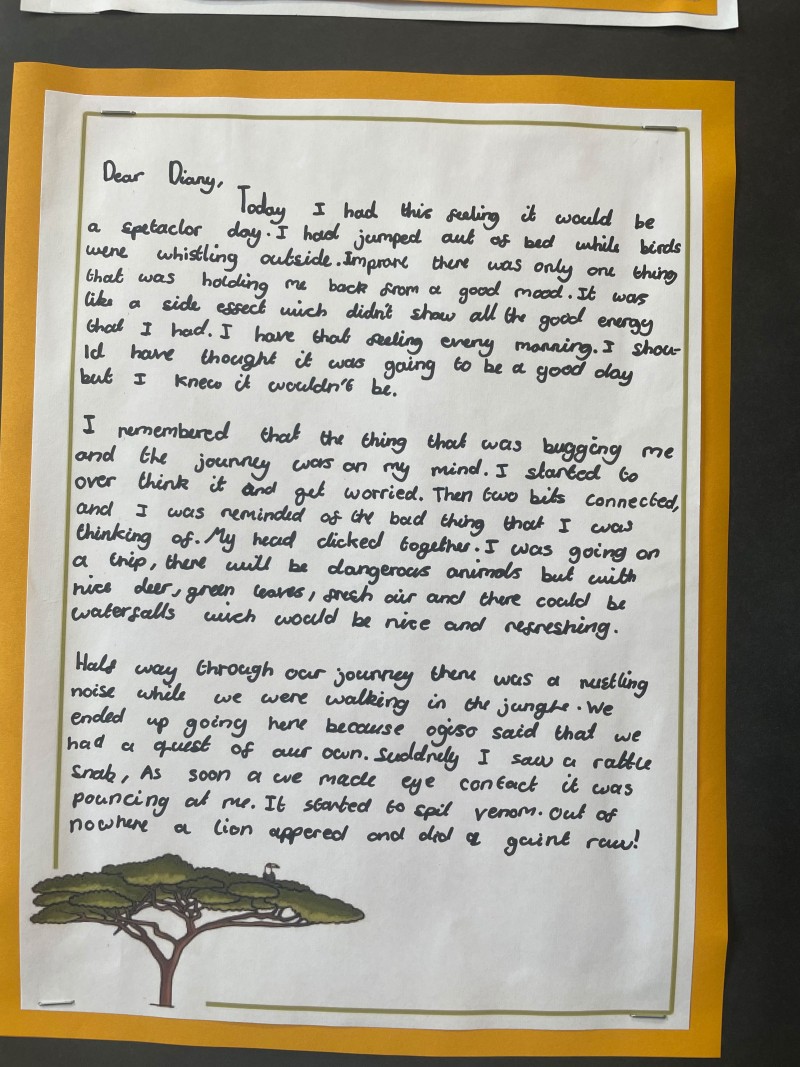 Dear Diary,
Today I had this feeling it would be
a spetaclor day. I had jumped out of bed while birds
were whistling outside. Improre there was only one thing
that was holding me back from a good mood. It was
like a side effect wich didn't show all the good energy
that I had. I have that feeling every morning. I shou-
ld have thought it was going to be a good day
but I knew it wouldn't be.
I remembered that the thing that was bugging me
and the journey was on my mind. I started to
over think it and get worried. Then two bits connected,
and I was reminded of the bad thing that I was
thinking of. My head clicked together. I was going on
a trip, there will be dangerous animals but with
nice deer, green leaves, fresh air and there could be
waterfalls wich would be nice and refreshing.
Half way through our journey there was a rustling
noise while we were walking in the jungle. We
ended up going here because ogiso said that we
had a quest of our own. Suddnely I saw a rattle
snak, As soon a we made eye contact it was
pouncing at me. It started to spil venom. Out of
nowhere a lion appered and did a gaint raw!